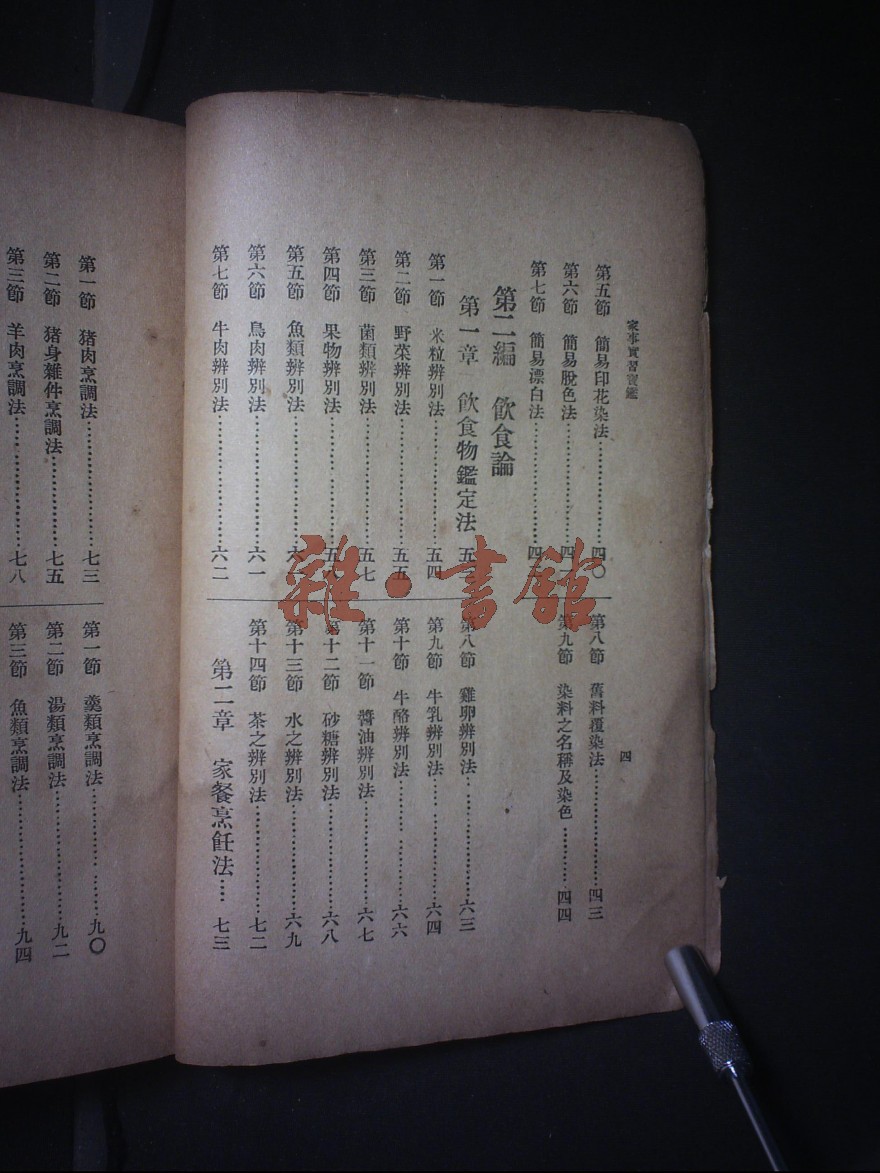 家事實習寶鑑
四
第五節 簡易印花染法…………四〇
第六節 簡易脫色法…………四
第七節 簡易漂白法…………四
第八節 舊料覆染法…………四三
第九節 染料之名稱及染色…………四四
第二編 飲食論
第一章 飲食物鑑定法 五
第一節 米粒辨別法…………五四
第二節 野菜辨別法…………五五
第三節 菌類辨別法…………五七
第四節 果物辨別法…………五
第五節 魚類辨別法…………六
第六節 鳥肉辨別法…………六一
第七節 牛肉辨別法…………六二
第八節 雞卵辨別法…………六三
第九節 牛乳辨別法…………六四
第十節 牛酪辨別法…………六六
第十一節 醬油辨別法…………六七
第十二節 砂糖辨別法…………六八
第十三節 水之辨別法…………六九
第十四節 茶之辨別法…………七二
第二章 家餐烹飪法……七三
第一節 猪肉烹調法…………七三
第二節 猪身雜件烹調法…………七五
第三節 羊肉烹調法…………七八
第一節 羹類烹調法…………九〇
第二節 湯類烹調法…………九二
第三節 魚類烹調法…………九四
雜·書館